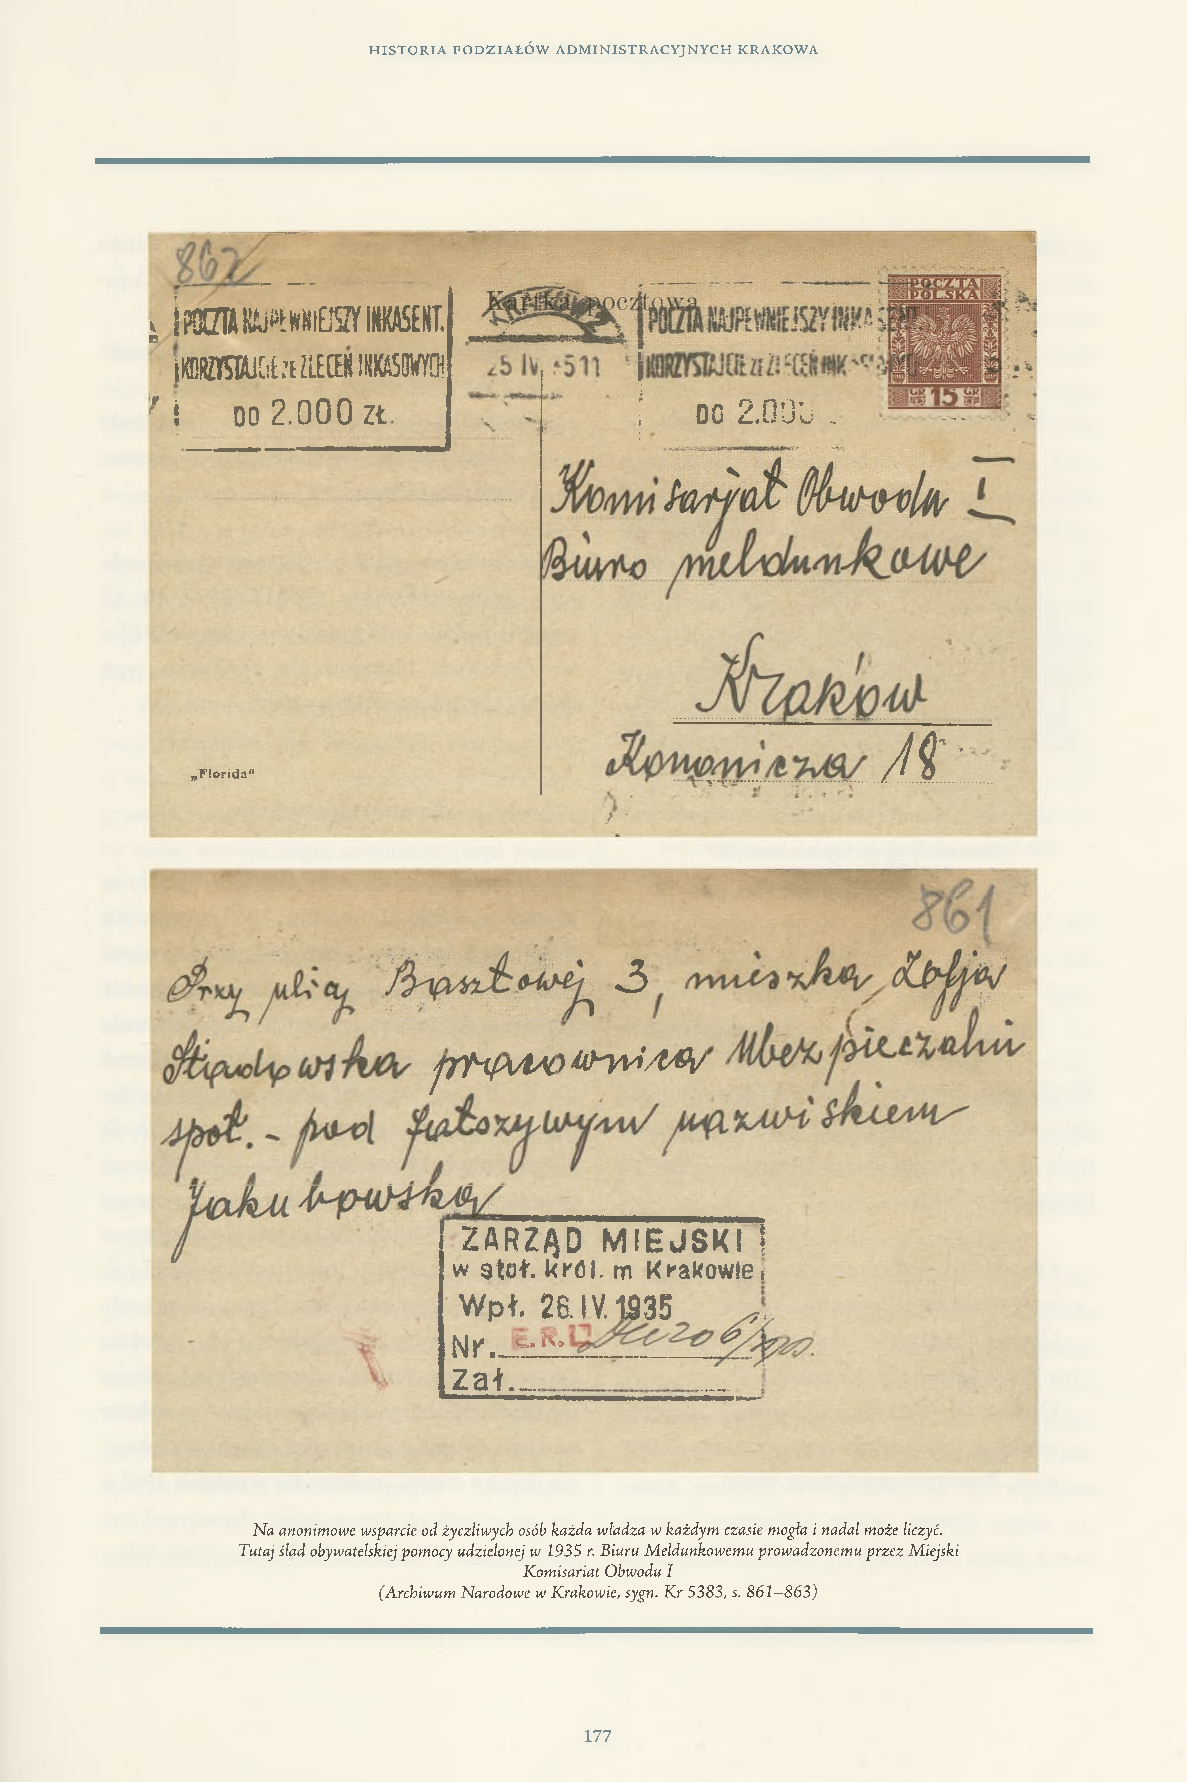 HISTORIA PODZIAŁÓW ADMINISTRACYJNYCH KRAKOWA
862
Kartka pocztowa
POCZTA NAJPEWNIEJSZY INKASENT.
KORZYSTAJCIE ZE ZLECEŃ INKASOWYCH
DO 2.000 ZŁ.
KRAKÓW 2
25 IV
POCZTA NAJPEWNIEJSZY INKASENT
KORZYSTAJCIE ZE ZLECEŃ INKASOWYCH
DO 2.000
POCZTA
POLSKA
GR 15 GR
Komisarjat Obwodu I
Biuro meldunkowe
Kraków
Kononicza 18
„Florida"
861
Przy ulicy Basztowej 3, mieszka Zofja
Stadowska pracownica Ubezpieczalni
społ. - pod fałszywym nazwiskiem
Jakubowska
ZARZĄD MIEJSKI
w stoł. król. m Krakowie
Wpł. 26.IV.1935
Nr. E.R.
Zał.
Na anonimowe wsparcie od życzliwych osób każda władza w każdym czasie mogła i nadal może liczyć.
Tutaj ślad obywatelskiej pomocy udzielonej w 1935 r. Biuru Meldunkowemu prowadzonemu przez Miejski
Komisariat Obwodu I
(Archiwum Narodowe w Krakowie, sygn. Kr 5383, s. 861–863)
177